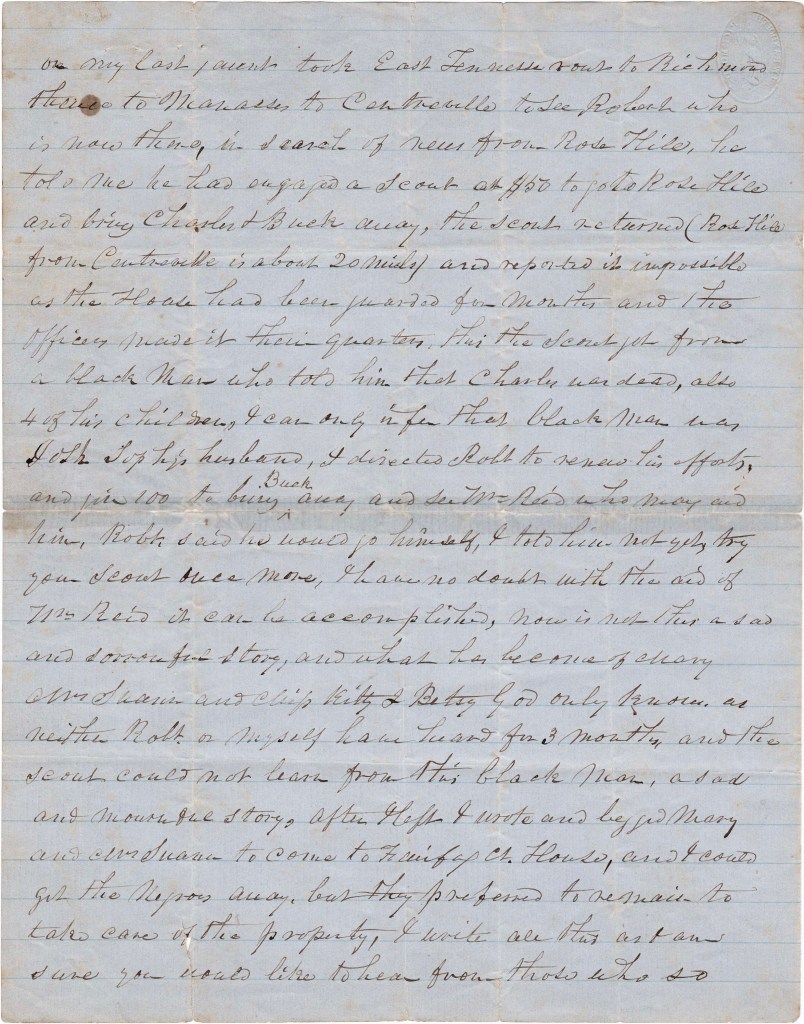 on my last jaunt took East Tennessee rout to Richmond
thence to Manassas to Centreville to see Robert who
is now there, in search of news from Rose Hill, he
told me he had engaged a scout at $50 to go to Rose Hill
and bring Charles & Buck away, the scout returned (Rose Hill
from Centreville is about 20 miles) and reported it impossible
as the House had been guarded for months and the
Officers made it their quarters, this the Scout got from
a black Man who told him that Charles was dead, also
4 of his children, I can only infer that black man was
Sophy's husband, I directed Robt to renew his efforts,
and give 100 to bring Buck away and see Mrs Reid who may aid
him, Robt said he would go himself, I told him not yet, try
your Scout once more, I have no doubt with the aid of
Mrs Reid it can be accomplished, now is not this a sad
and sorrowful story, and what has become of Mary
Mrs Swann and Kitty & Betsy God only knows. as
neither Robt. or myself have heard for 3 months, and the
scout could not learn from this black Man, a sad
and mournful story, after I left I wrote and begged Mary
and Mrs Swann to come to Fairfax Ct. House, and I could
get the Negroes away, but they preferred to remain to
take care of the property, I write all this as I am
sure you would like to hear from those who so